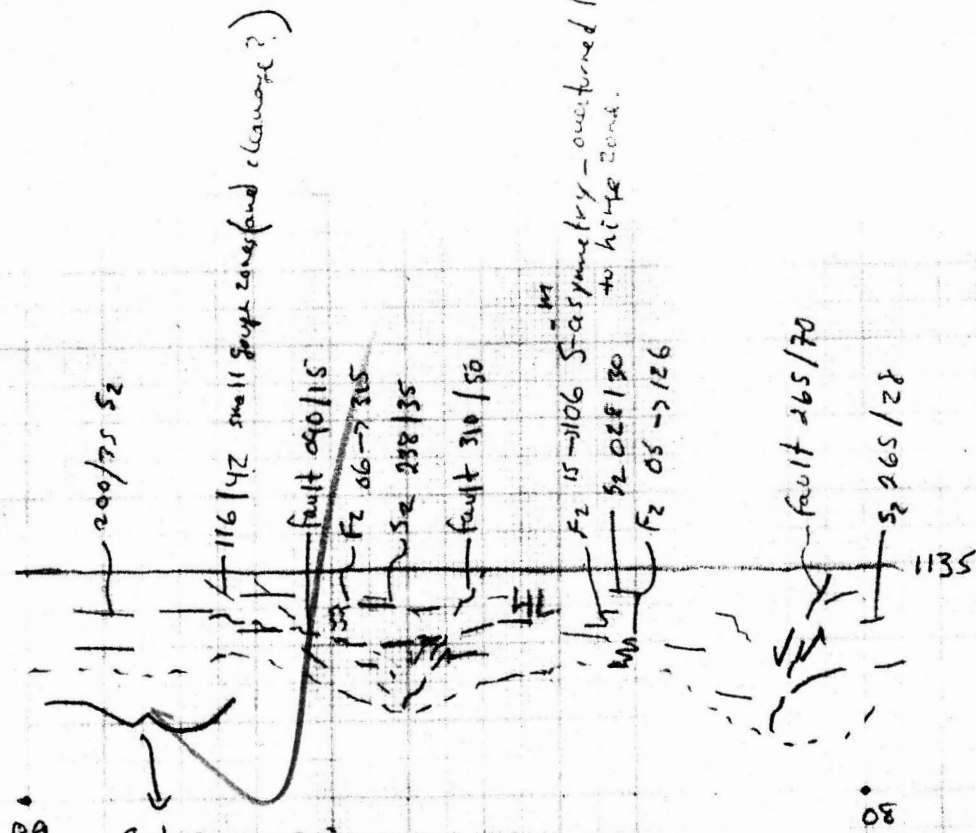 200/35 S2
116/42 small gouge zones (and cleavage?)
fault 090/15
F2 06->315
S2 238/35
fault 310/50
F2 15->106 S-asymmetry - overturned
to hinge zone.
m
S2 028/30
F2 05->126
fault 265/70
S2 265/28
1135
30